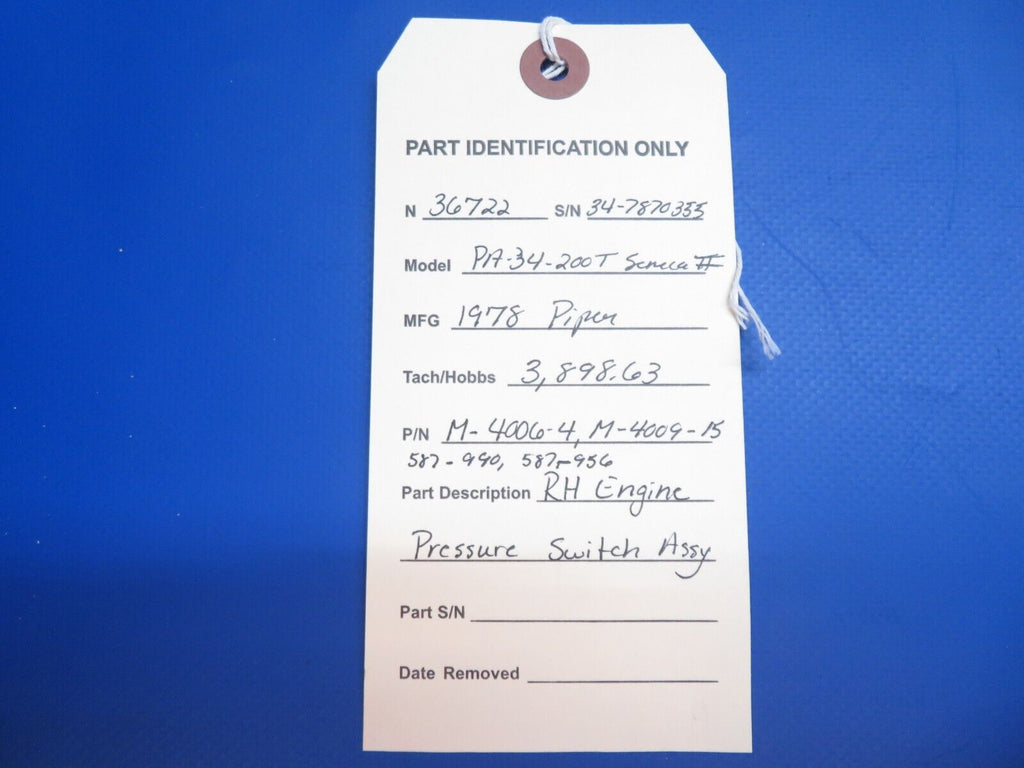 PART IDENTIFICATION ONLY
N 36722 S/N 34-7870355
Model PA-34-200T Seneca II
MFG 1978 Piper
Tach/Hobbs 3,898.63
P/N M-4006-4, M-4009-15
587-990, 587-956
Part Description RH Engine
Pressure Switch Assy
Part S/N
Date Removed